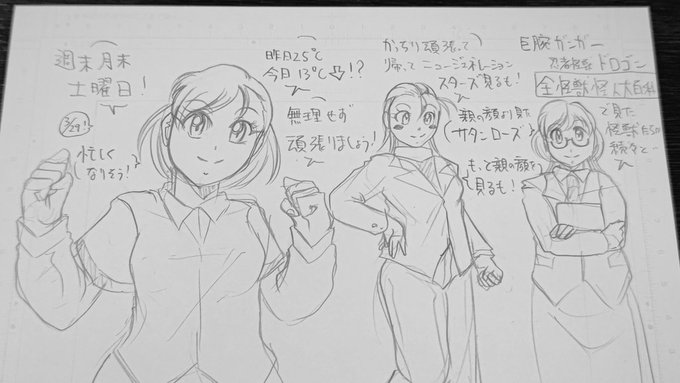 週末月末
土曜日!
3/29!
忙しく
なりそう!
昨日25℃
今日13℃⇩!?
無理せず
頑張りましょう!
かっちり頑張って
帰って ニュージェネレーション
スターズ見るも!
親の顔より見た
サタンローズ
もっと親の顔を
見るも!
巨腕ガンガー
忍者怪獣 ドロゴン
全怪獣怪人大百科
で見た
怪獣たちが
続々と…